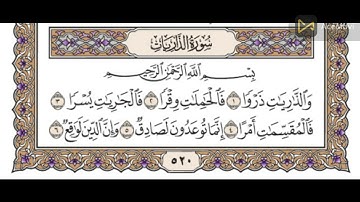 سُورَةُ الذَّارِيَاتِ
بِسْمِ اللَّهِ الرَّحْمَٰنِ الرَّحِيمِ
وَالذَّارِيَاتِ ذَرْوًا ١ فَالْحَامِلَاتِ وِقْرًا ٢ فَالْجَارِيَاتِ يُسْرًا ٣
فَالْمُقَسِّمَاتِ أَمْرًا ٤ إِنَّمَا تُوعَدُونَ لَصَادِقٌ ٥ وَإِنَّ الدِّينَ لَوَاقِعٌ ٦
٥٢٠